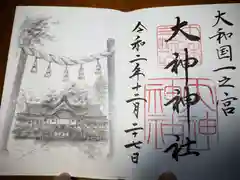 大和国一之宮
大神神社
令和二年十二月二十七日